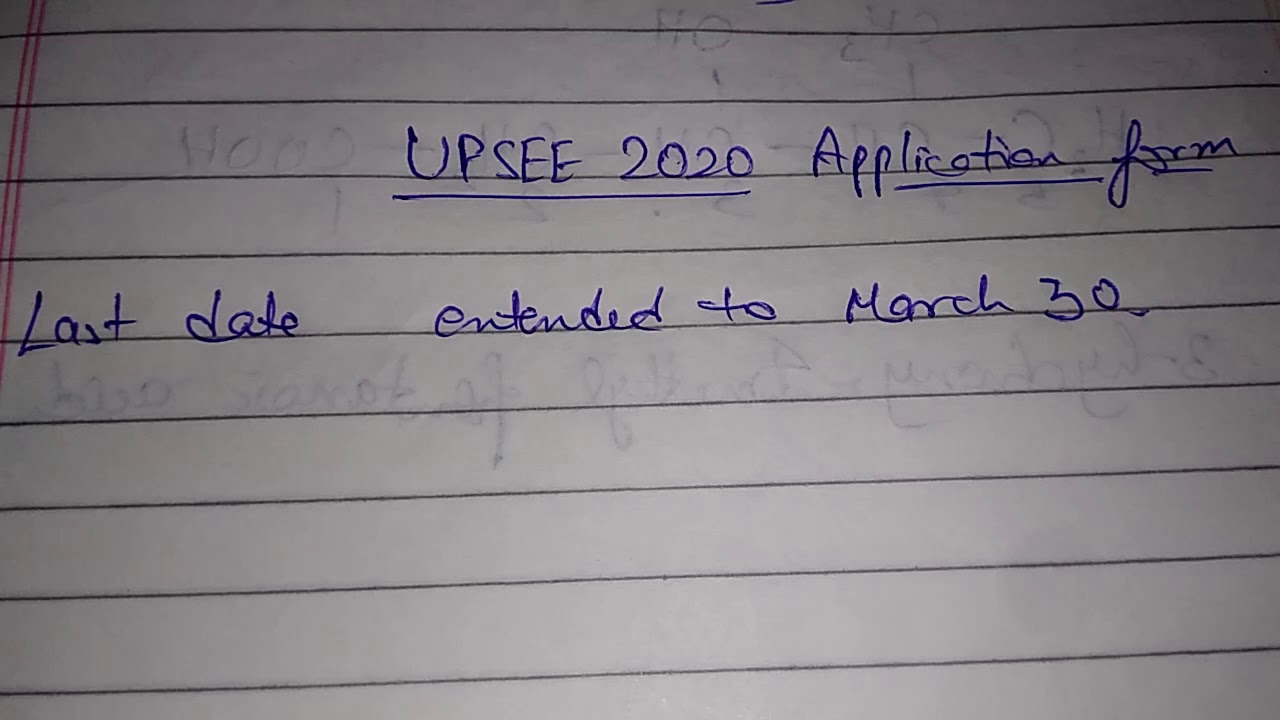 UPSEE 2020 Application form
Last date entended to March 30